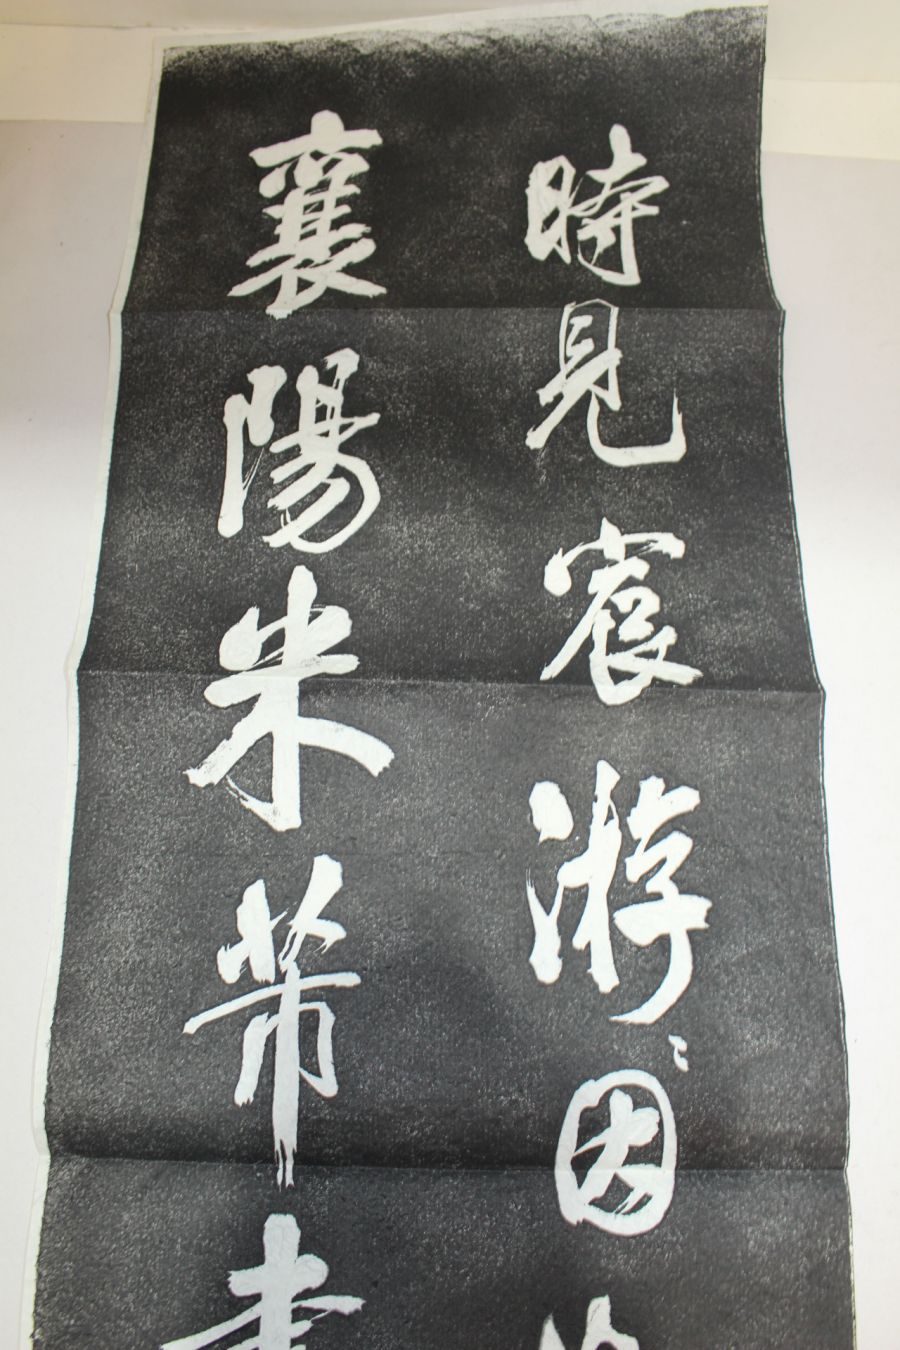 時見宸游〻因
襄陽米芾書